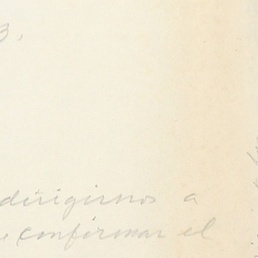 3,
dirigirnos a
e confirmar el